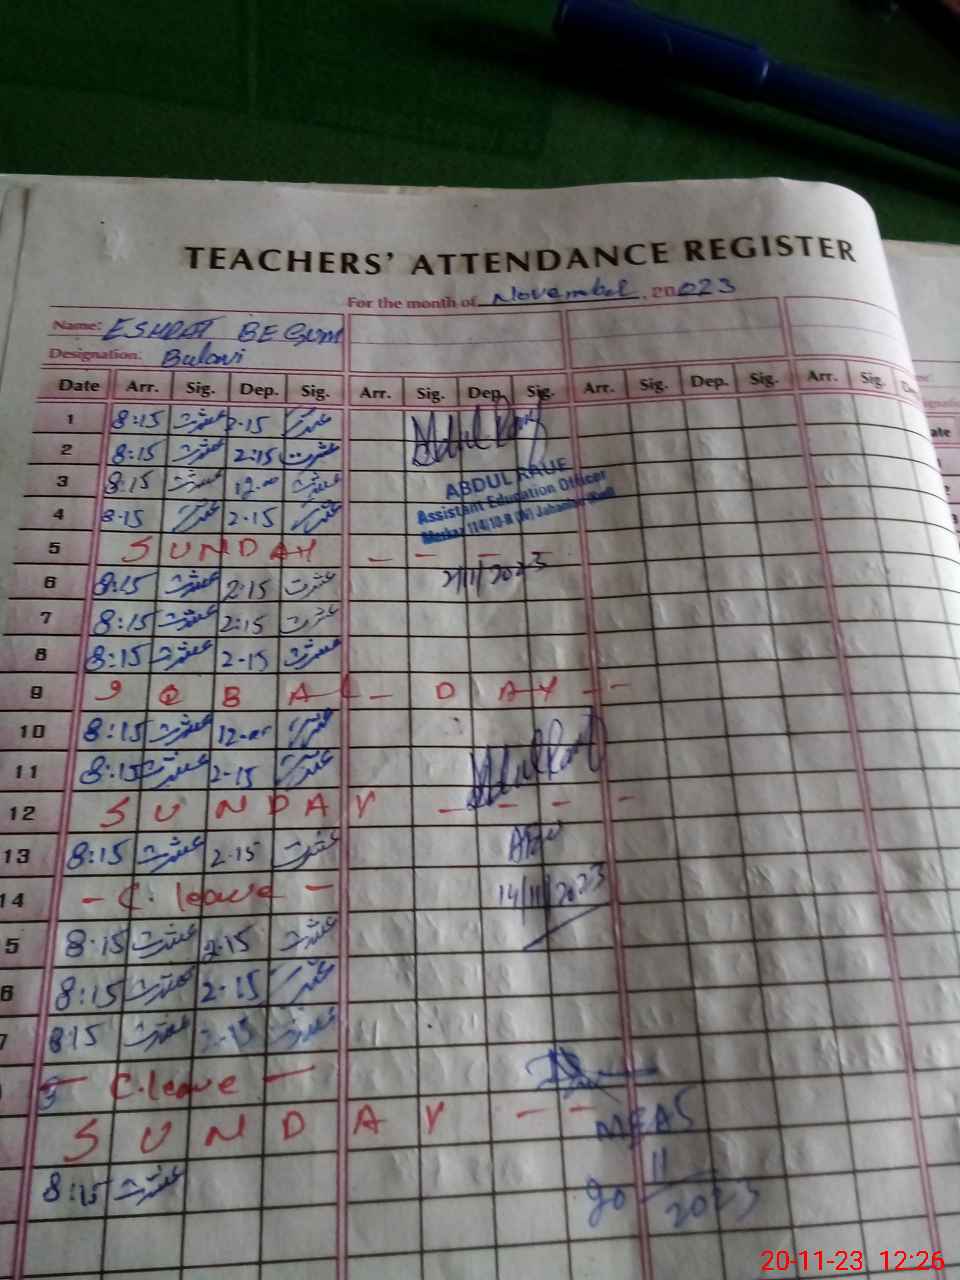 TEACHERS' ATTENDANCE REGISTER
For the month of November, 20023
Name: ESHRAT BEGUM
Designation:
Date Arr. Sig. Dep. Sig. Arr. Sig. Dep. Sig. Arr. Sig. Dep. Sig. Arr. Sig.
1 8:15 عشرت 2-15 عشرت
2 8:15 عشرت 2:15 عشرت
ABDUL RAUF
3 8:15 عشرت 12-00 عشرت
Assistant Education Officer
4 8-15 عشرت 2-15 عشرت
Markaz 114/10-R (W) Jahanian
5 SUNDAY - - -
2/11/2023
6 8:15 عشرت 2:15 عشرت
7 8:15 عشرت 2:15 عشرت
8 8:15 عشرت 2-15 عشرت
9 IQBAL - DAY - -
10 8:15 عشرت 12-00 عشرت
11 8:15 عشرت 2-15 عشرت
12 SUNDAY - - - -
13 8:15 عشرت 2-15 عشرت
14 - C. leave -
14/11/2023
5 8:15 عشرت 2-15 عشرت
6 8:15 عشرت 2-15 عشرت
7 8:15 عشرت 2-15 عشرت
- C. leave -
SUNDAY - -
MEAS
8:15 عشرت
20 11
2023
20-11-23 12:26